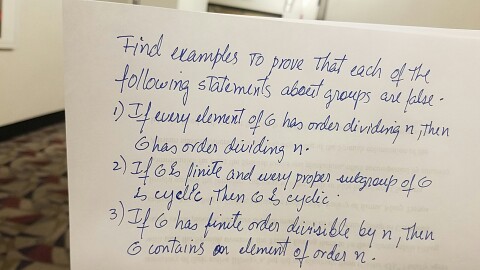 Find examples to prove that each of the
following statements about groups are false.
1) If every element of G has order dividing n, then
G has order dividing n.
2) If G is finite and every proper subgroup of G
is cyclic, then G is cyclic.
3) If G has finite order divisible by n, then
G contains an element of order n.